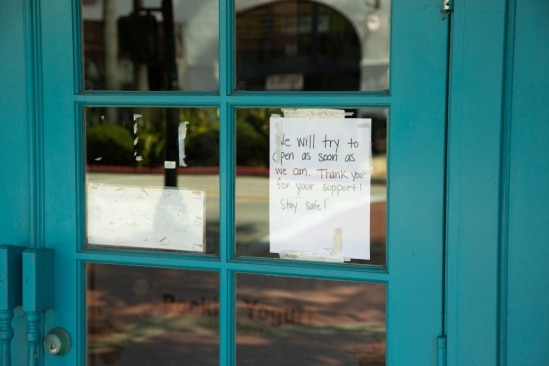 We will try to
open as soon as
we can. Thank you
for your support!
Stay safe!
Yogurt